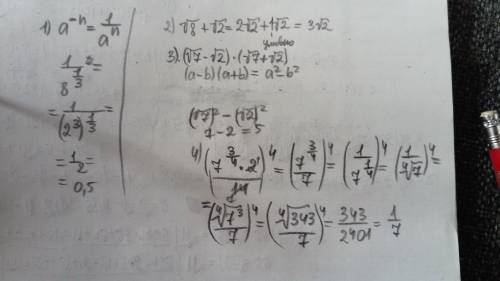 1) a⁻ⁿ = 1/aⁿ
1/8^(1/3) =
= 1/(2³)^(1/3) =
= 1/2 =
= 0,5
2) √8 + √2 = 2√2 + 1√2 = 3√2
3) (√7 - √2) · (√7 + √2)
(a-b)(a+b) = a² - b²
(√7)² - (√2)²
7 - 2 = 5
4) (7^(3/4) · 2¹/14)⁴ = (7^(3/4)/7)⁴ = (1/7^(1/4))⁴ = (1/⁴√7)⁴ =
= (⁴√7³/7)⁴ = (⁴√343/7)⁴ = 343/2401 = 1/7